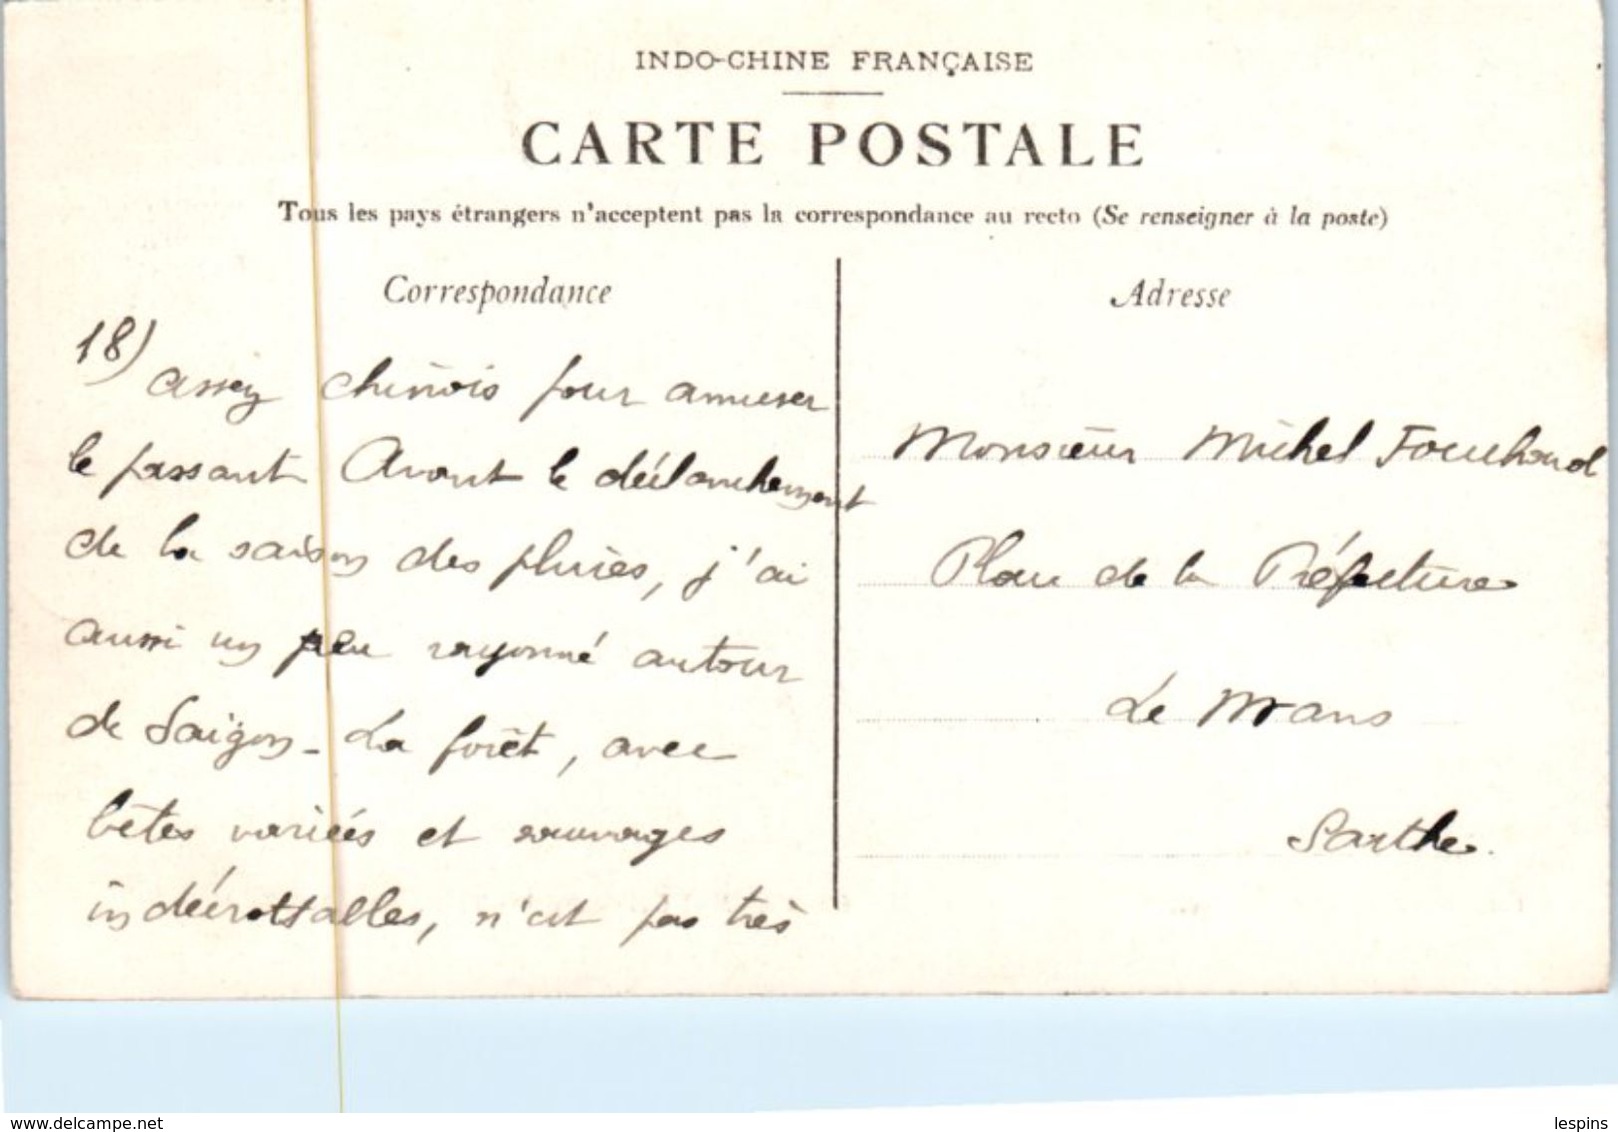 INDO-CHINE FRANÇAISE
CARTE POSTALE
Tous les pays étrangers n'acceptent pas la correspondance au recto (Se renseigner à la poste)
Correspondance
18)
assez chinois pour amuser
le passant Avant le déclanchement
de la saison des pluies, j'ai
aussi un peu rayonné autour
de Saïgon - La forêt, avec
bêtes variées et sauvages
indécrottables, n'est pas très
Adresse
Monsieur Michel Fouchard
Place de la Préfecture
Le Mans
Sarthe.
www.delcampe.net
lespins